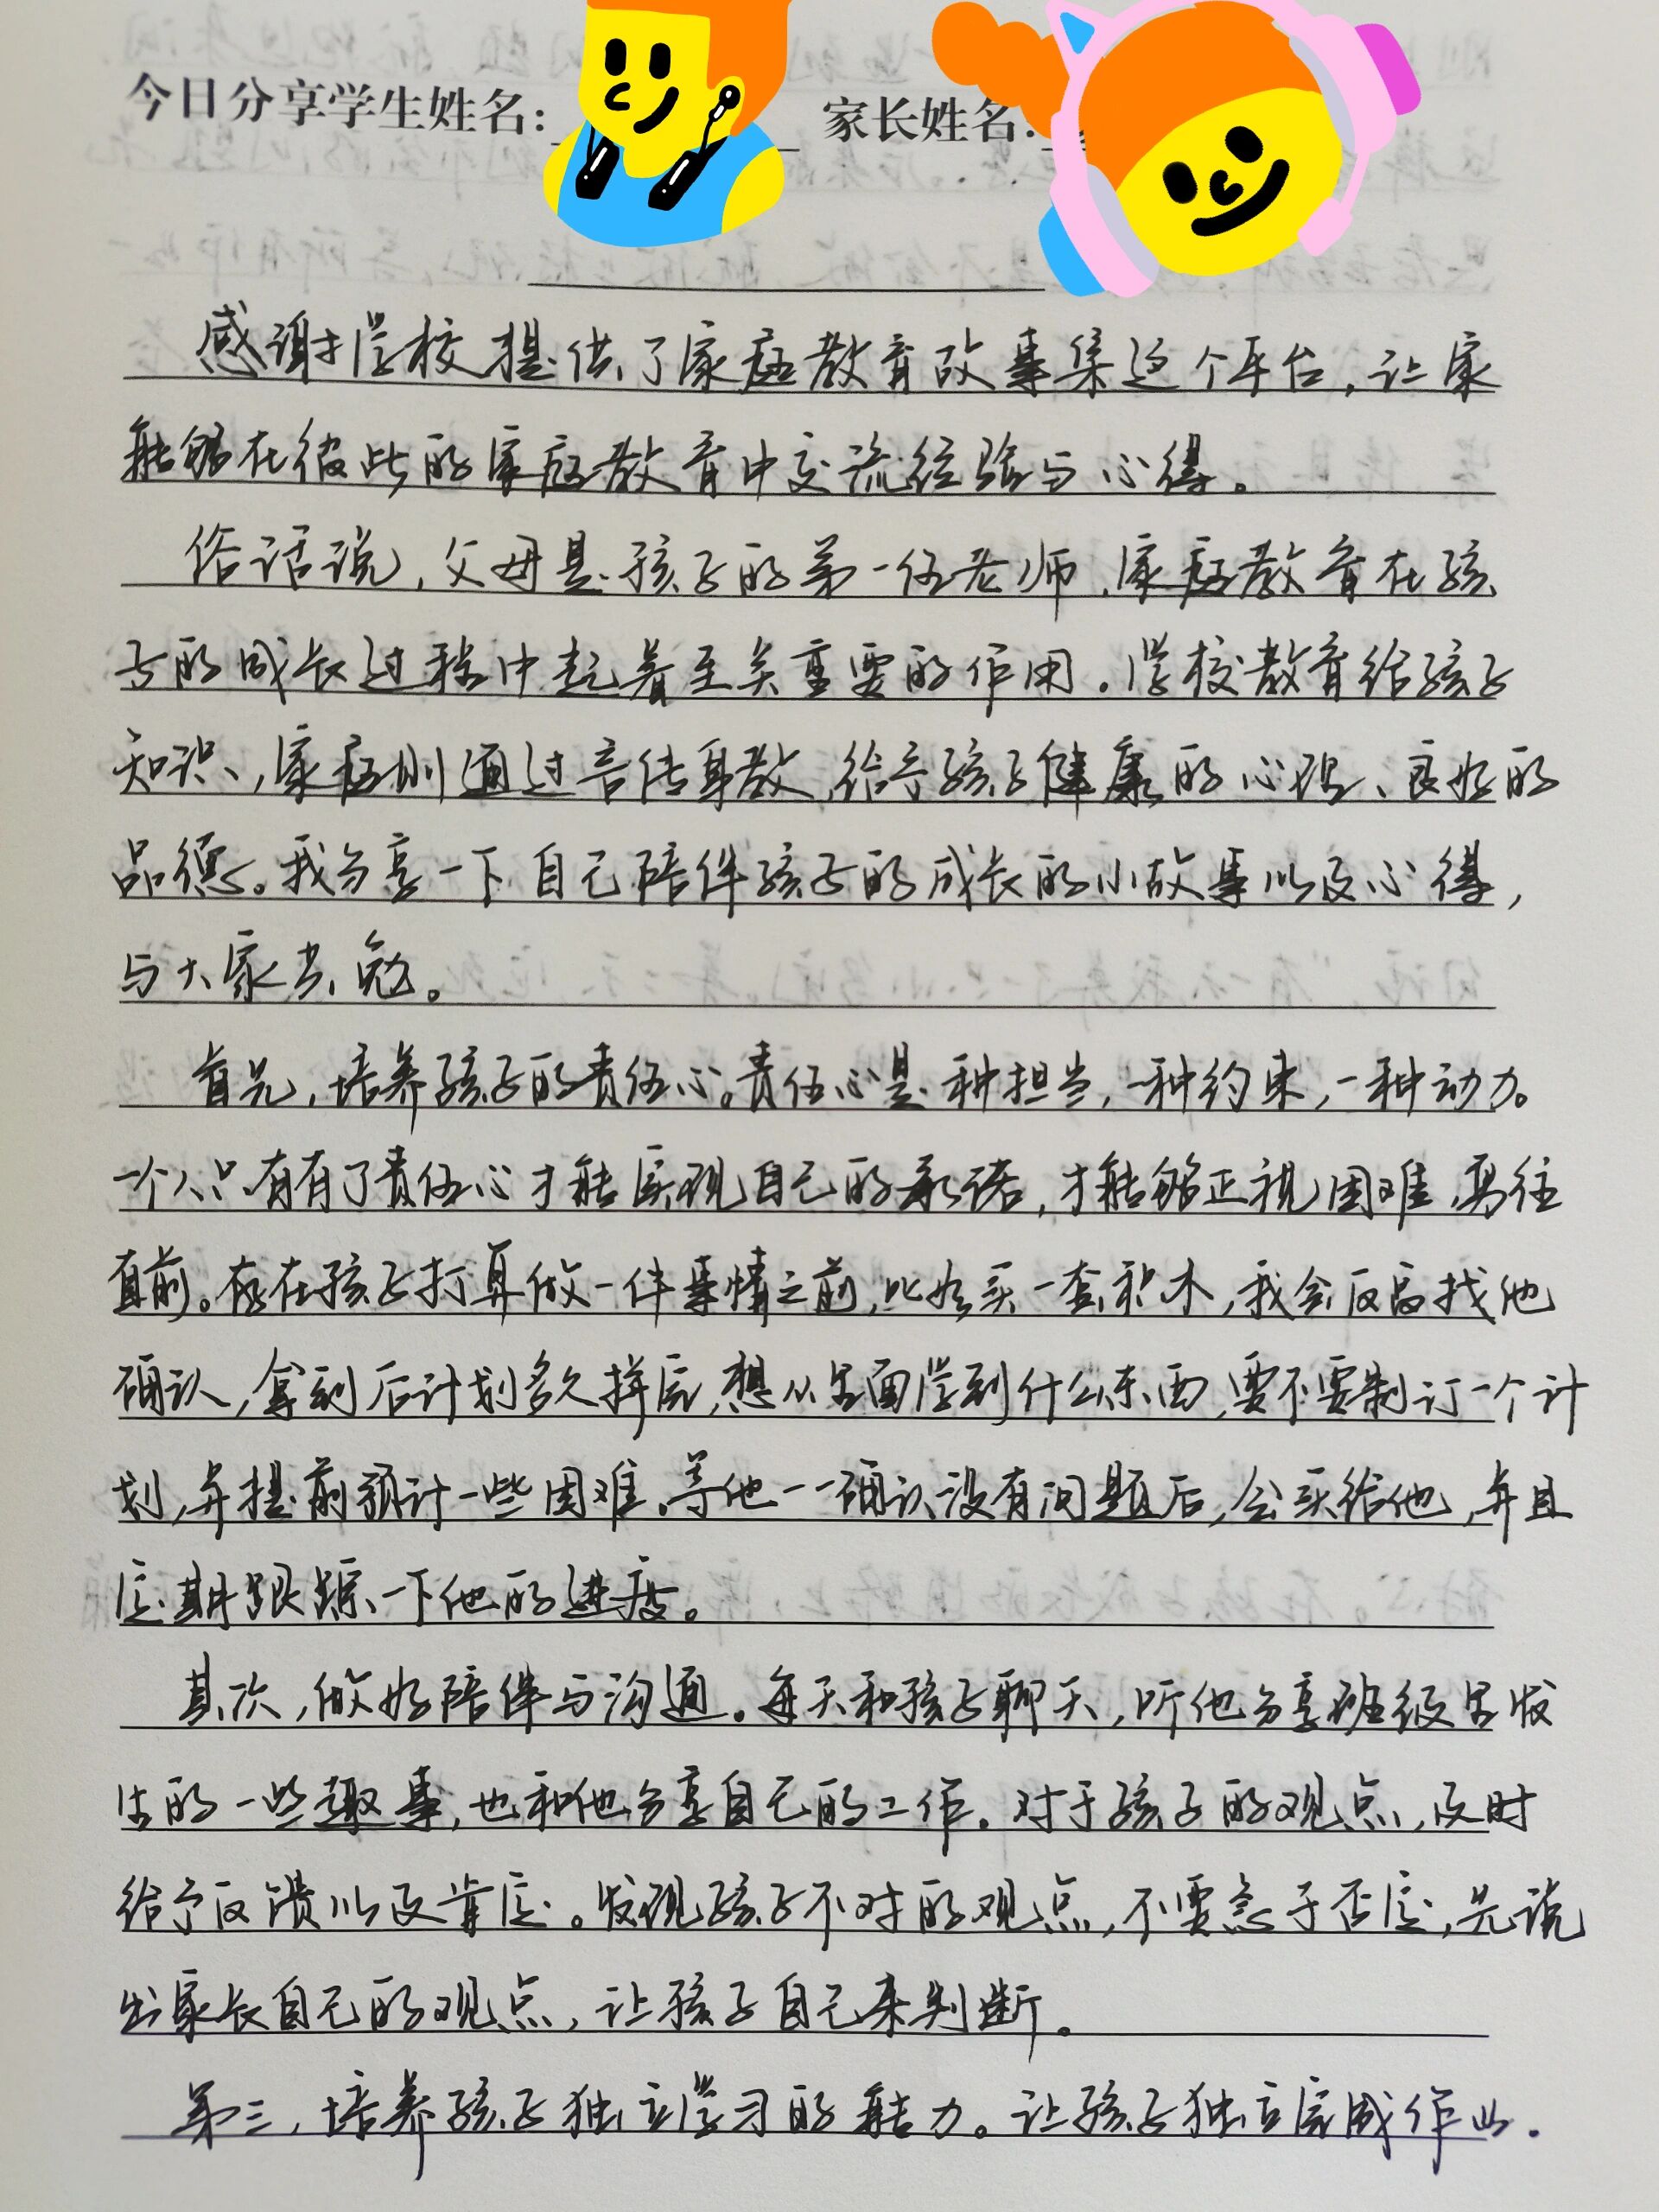 今日分享学生姓名: 家长姓名:
感谢学校提供了家庭教育故事集这个平台,让家
能够在彼此的家庭教育中交流经验与心得。
俗话说,父母是孩子的第一任老师,家庭教育在孩
子的成长过程中起着至关重要的作用。学校教育给孩子
知识,家庭则通过言传身教,给予孩子健康的心理、良好的
品德。我分享一下自己陪伴孩子的成长的小故事以及心得,
与大家共勉。
首先,培养孩子的责任心。责任心是一种担当,一种约束,一种动力。
一个人只有有了责任心才能实现自己的承诺,才能够正视困难,勇往
直前。在孩子打算做一件事情之前,比如买一套积木,我会反复找他
确认,拿到后计划多久拼完,想从里面学到什么东西,要不要制订一个计
划,并提前预计一些困难。等他一一确认没有问题后,会买给他,并且
定期跟踪一下他的进度。
其次,做好陪伴与沟通。每天和孩子聊天,听他分享班级里发
生的一些趣事,也和他分享自己的工作。对于孩子的观点,及时
给予反馈以及肯定。发现孩子不对的观点,不要急于否定,先说
出家长自己的观点,让孩子自己来判断。
第三,培养孩子独立学习的能力。让孩子独立完成作业.